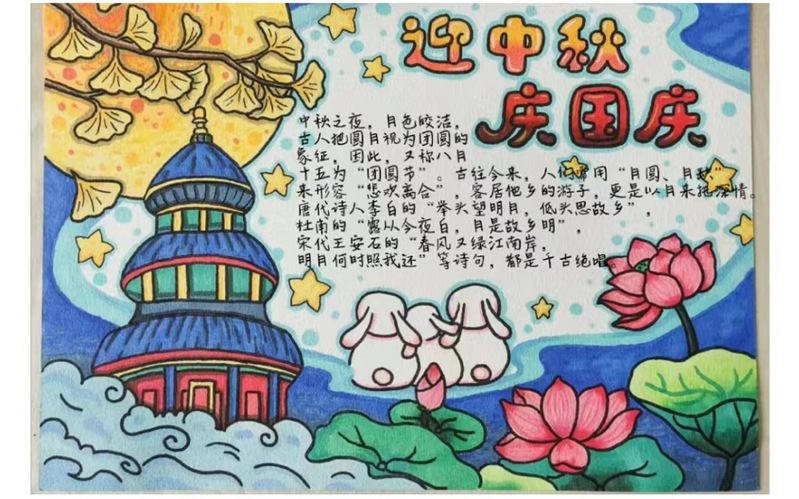 迎中秋
庆国庆
中秋之夜，月色皎洁，
古人把圆月视为团圆的
象征，因此，又称八月
十五为“团圆节”。古往今来，人们常用“月圆、月缺”
来形容“悲欢离合”，客居他乡的游子，更是以月来抱深情。
唐代诗人李白的“举头望明月，低头思故乡”，
杜甫的“露从今夜白，月是故乡明”，
宋代王安石的“春风又绿江南岸，
明月何时照我还”等诗句，都是千古绝唱。